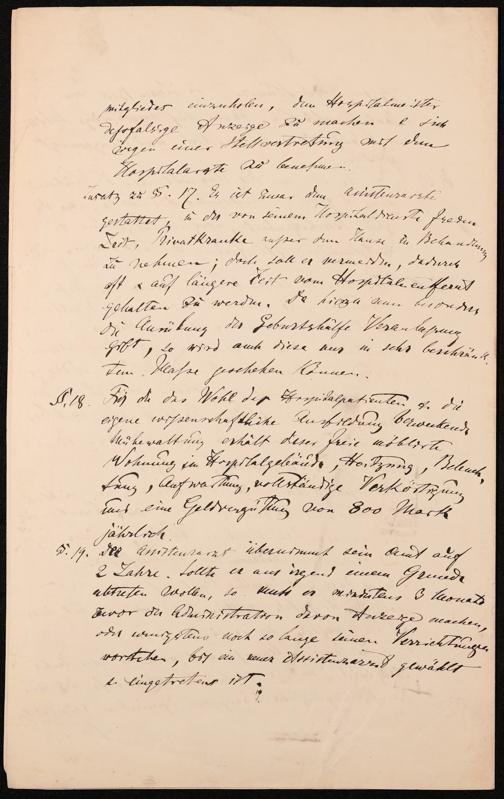 mitgliedes einzuholen, dem Hospitalmeister
desfalsige Anzeige zu machen & sich
wegen einer Stellvertretung mit dem
Hospitalarzte zu benehmen.
Zusatz zu §. 17. Es ist zwar dem Assistenzarzte
gestattet, in der von seinem Hospitaldienste freien
Zeit, Privatkranke ausser dem Hause in Behandlung
zu nehmen; doch soll er vermeiden, dadurch
oft & auf längere Zeit vom Hospitale entfernt
gehalten zu werden. Da hiezu nun besonders
die Ausübung der Geburtshülfe Veranlassung
gibt, so wird auch diese nur in sehr beschränk-
tem Masse geschehen können.
§. 18. Für die das Wohl der Hospitalpatienten & die
eigene wissenschaftliche Ausbildung bezweckende
Mühewaltung erhält dieser freie möblirte
Wohnung im Hospitalgebäude, Heitzung, Beleuch-
tung, Aufwartung, vollständige Verköstigung
und eine Geldvergütung von 800 Mark
jährlich.
§. 19. Der Assistenzarzt übernimmt sein Amt auf
2 Jahre. Sollte er aus irgend einem Grunde
abtreten wollen, so muss er mindestens 3 Monate
zuvor der Administration davon Anzeige machen,
oder wenigstens noch so lange seinen Verrichtungen
vorstehen, bis ein neuer Assistenzarzt gewählt
& eingetreten ist.